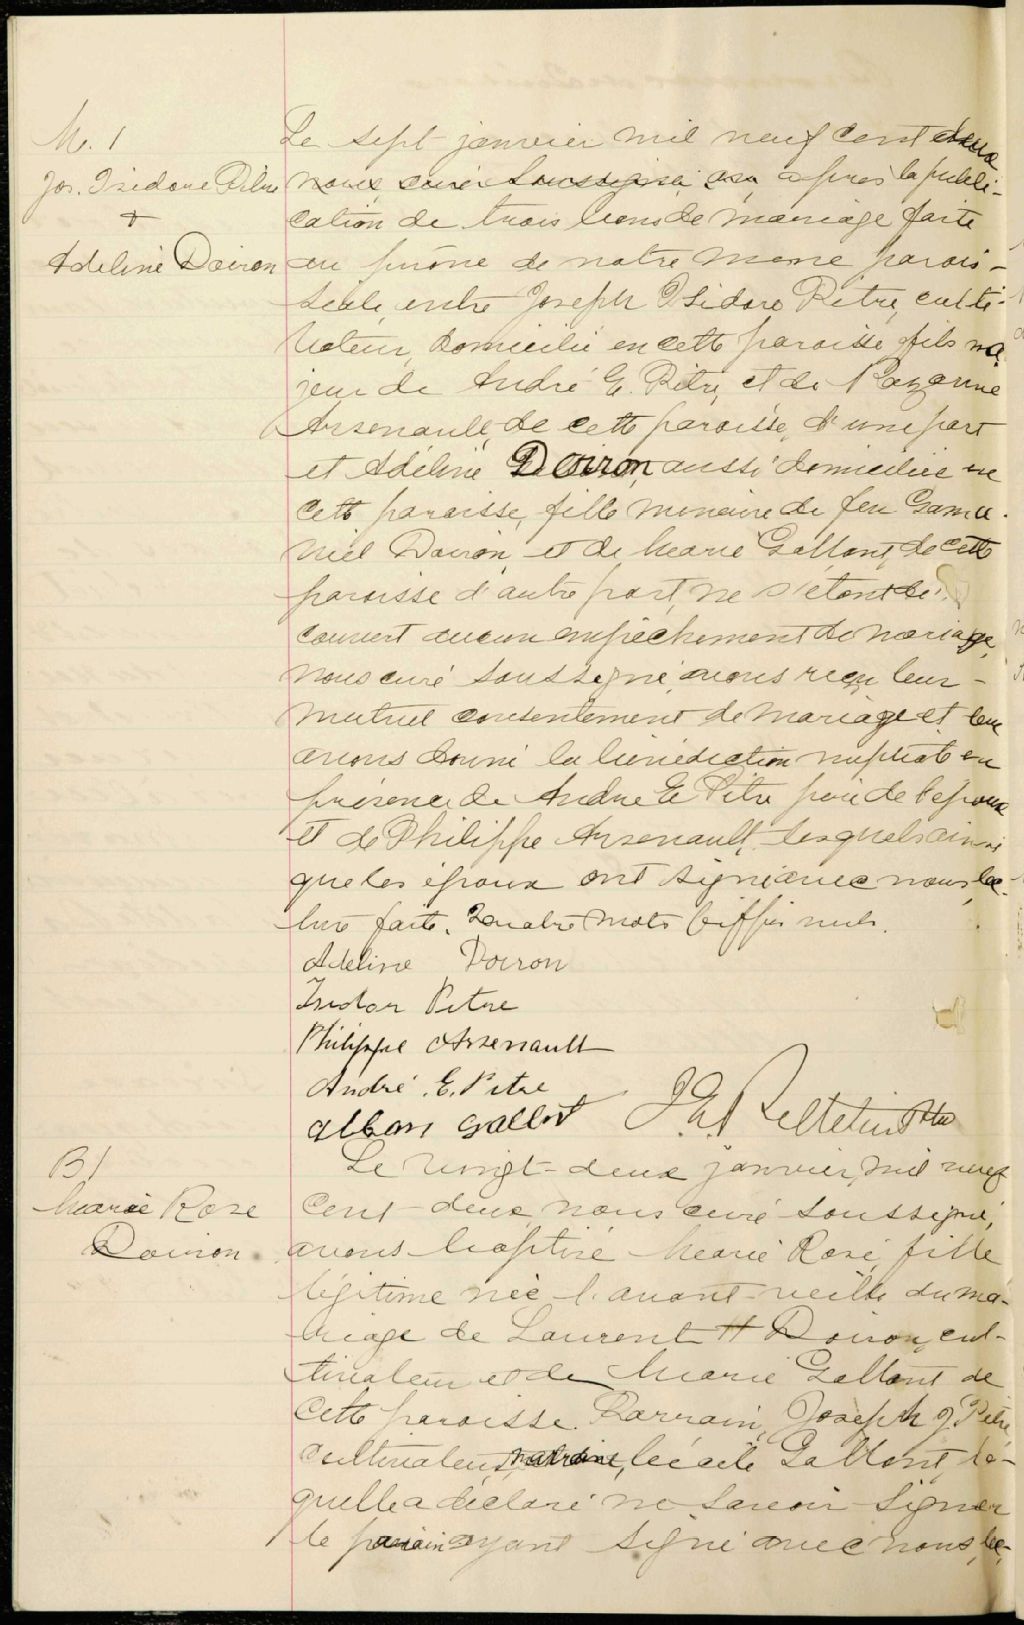 M. 1
Jos. Isidore Pitre
+
Adeline Doiron
Le sept janvier mil neuf cent deux
nous curé soussigné après la publi-
cation de trois bans de mariage faite
au prône de notre messe parois-
siale, entre Joseph Isidore Pitre, culti-
vateur, domicilié en cette paroisse fils ma-
jeur de André E. Pitre, et de Rozanne
Arsenault, de cette paroisse, d'une part
et Adéline Doiron, aussi domiciliée en
cette paroisse, fille mineure de feu Gama-
niel Doiron, et de Marie Gallant, de cette
paroisse d'autre part, ne s'étant dé-
couvert aucun empêchement de mariage,
nous curé soussigné, avons reçu leur
mutuel consentement de mariage et leur
avons donné la bénédiction nuptiale en
présence de André E Pitre père de l'époux
et de Philippe Arsenault, lesquels ainsi
que les époux ont signé avec nous, lec-
ture faite. Quatre mots biffés nuls.
Adeline Doiron
Isidor Pitre
Philippe Arsenault
André . E. Pitre
Alban Gallant
J. A. Pelletier Ptre
B 1
Marie Rose
Doiron
Le vingt-deux janvier, mil neuf
cent-deux, nous curé soussigné,
avons baptisé Marie Rose, fille
légitime née l'avant-veille du ma-
riage de Laurent H Doiron, cul-
tivateur et de Marie Gallant de
cette paroisse. Parrain, Joseph J. Pitre,
cultivateur, marraine, Cécile Gallant, la-
quelle a déclaré ne savoir signer
le parrain ayant signé avec nous, lec-